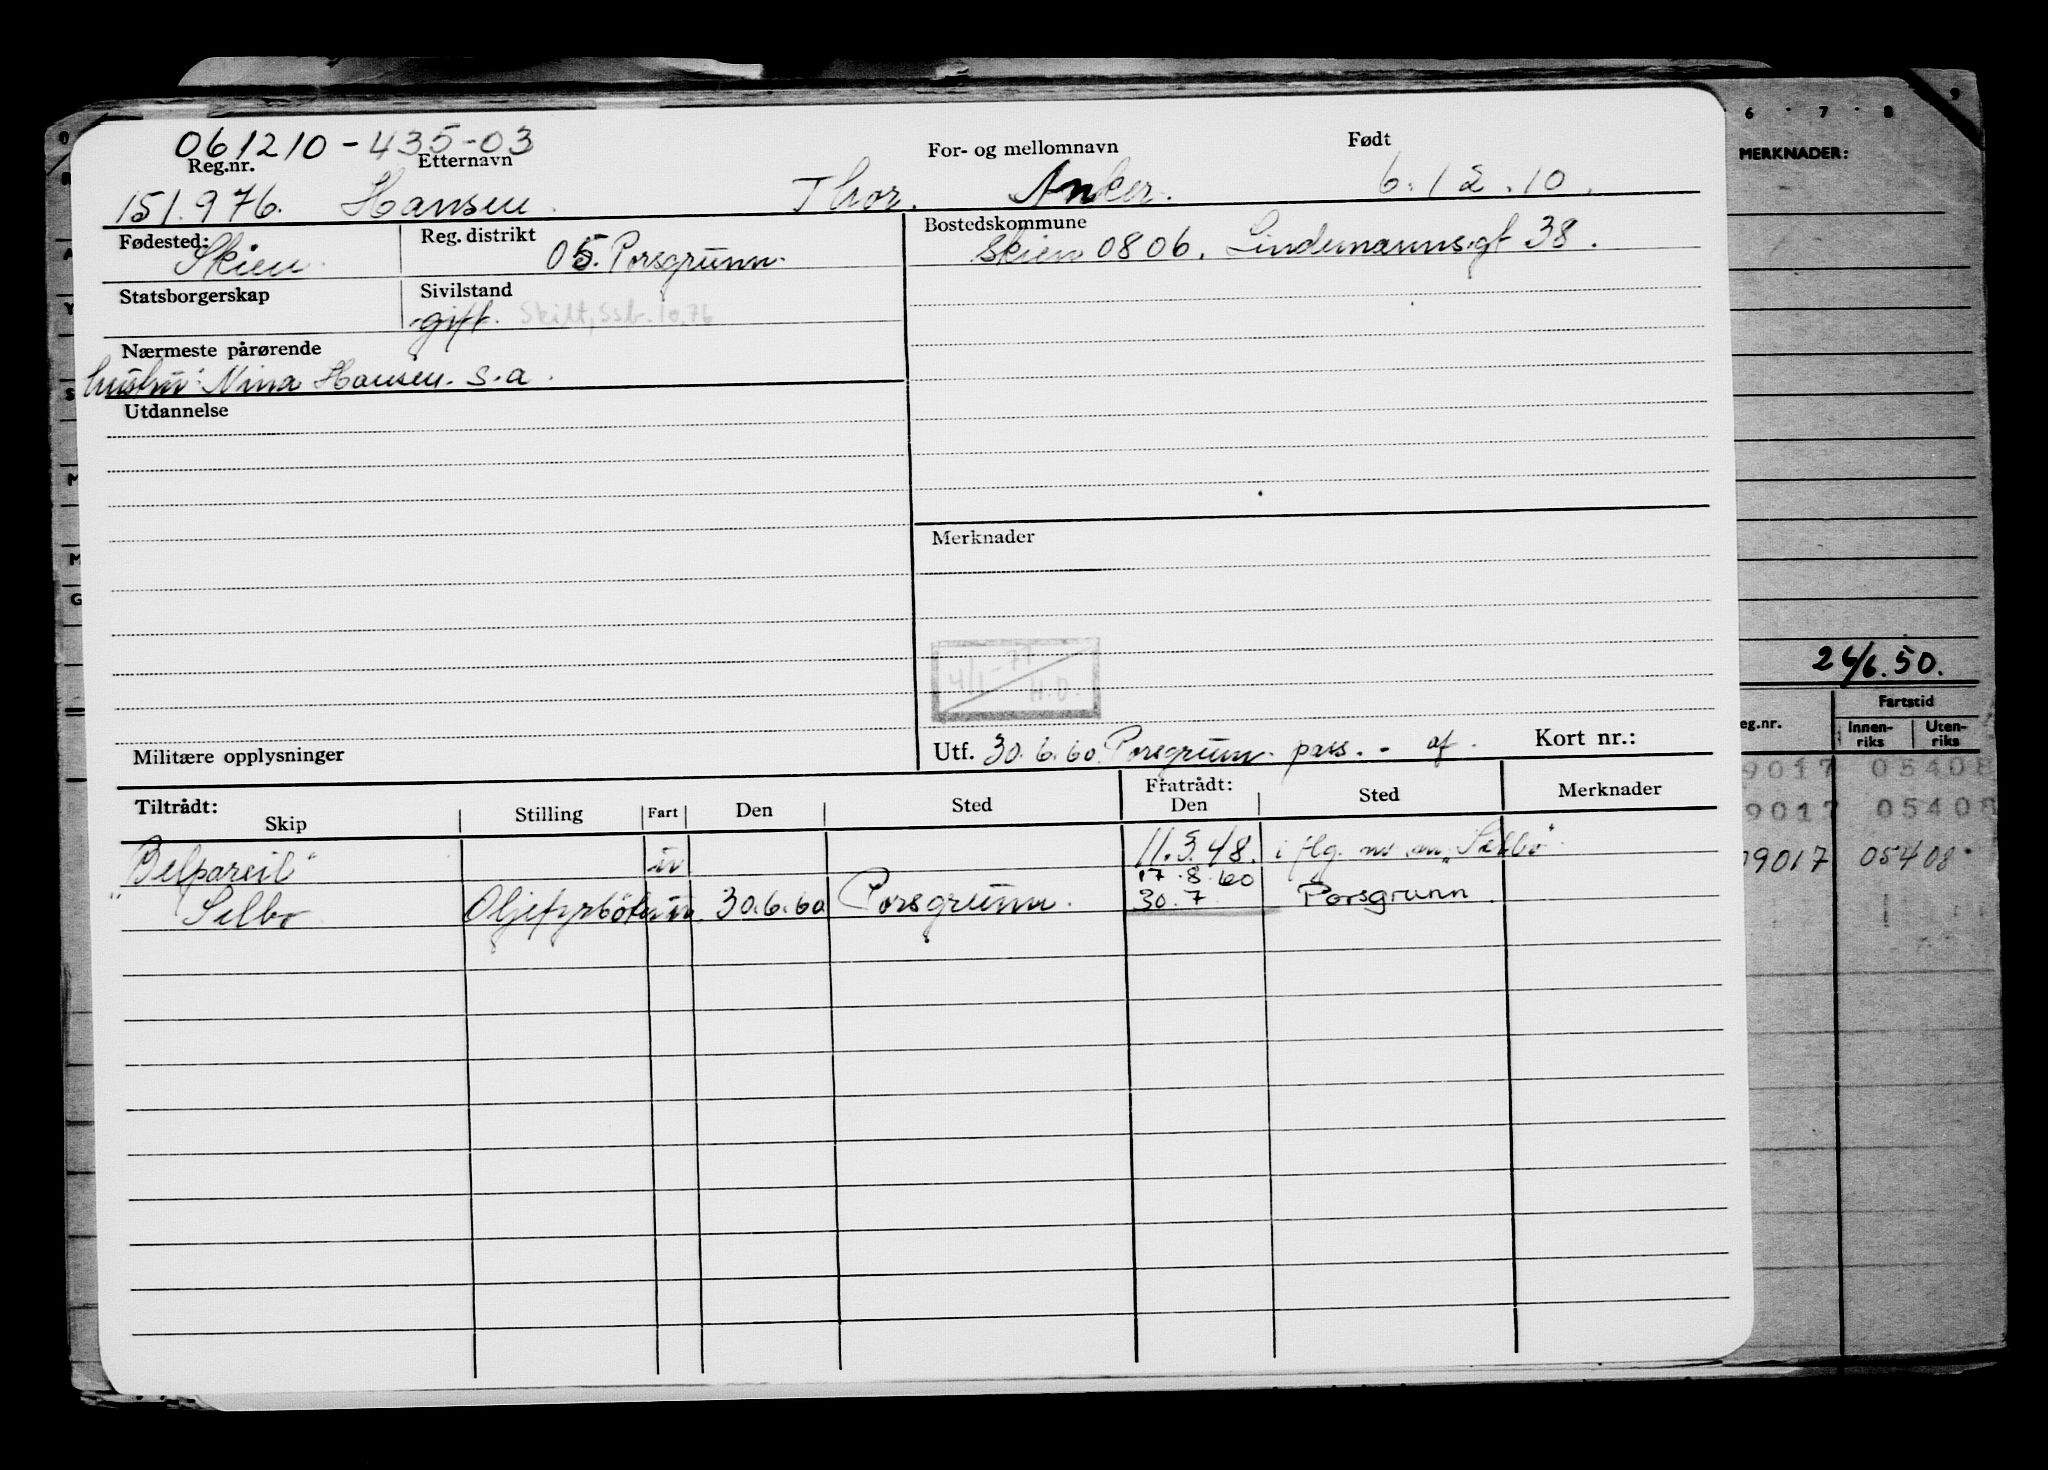 061210-435-03
Reg.nr. Etternavn For- og mellomnavn Født
151.976. Hansen. Thor. Anker. 6.12.10.
Fødested: Reg. distrikt Bostedskommune
Skien. 05. Porsgrunn. Skien 0806. Lindemannsgt 38.
Statsborgerskap Sivilstand
gift. Skilt, Ssb. 10.76
Nærmeste pårørende
hustru: Nina Hansen. s.a.
Utdannelse
Merknader
4/1-77 H.O.
Militære opplysninger
Utf. 30.6.60. Porsgrunn. pass. - af. Kort nr.:
Tiltrådt: Fratrådt:
Skip Stilling Fart Den Sted Den Sted Merknader
"Belpareil" uv 11.3.48. i flg. "Selbo"
17.8.60
"Selbo Oljefyrbøter uv. 30.6.60 Porsgrunn. 30.7 Porsgrunn.
6 7 8 9
MERKNADER:
26/6.50.
eg.nr. Fartstid
Innenriks Utenriks
9017 05408
9017 05408
09017 05408